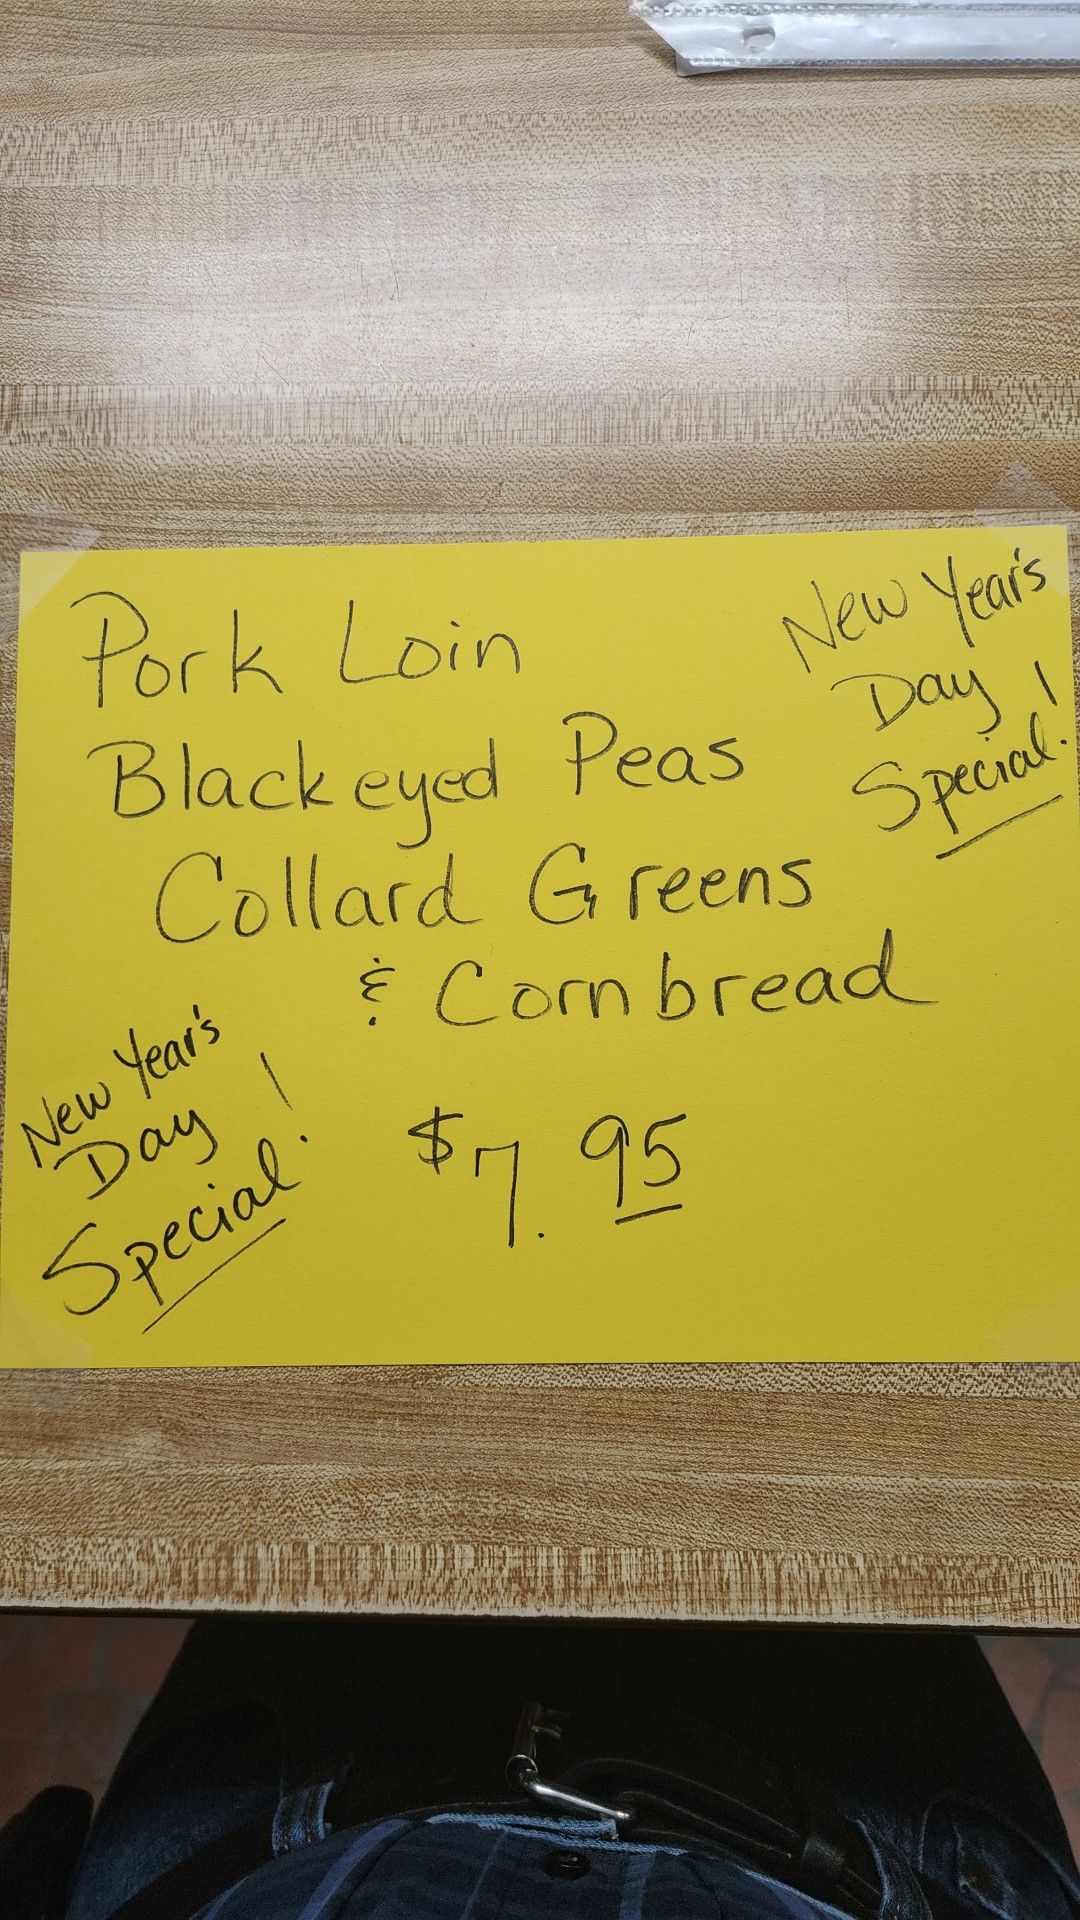 Pork Loin
Blackeyed Peas
Collard Greens
& Cornbread
$7.95
New Year's
Day
Special!
New Year's
Day
Special!